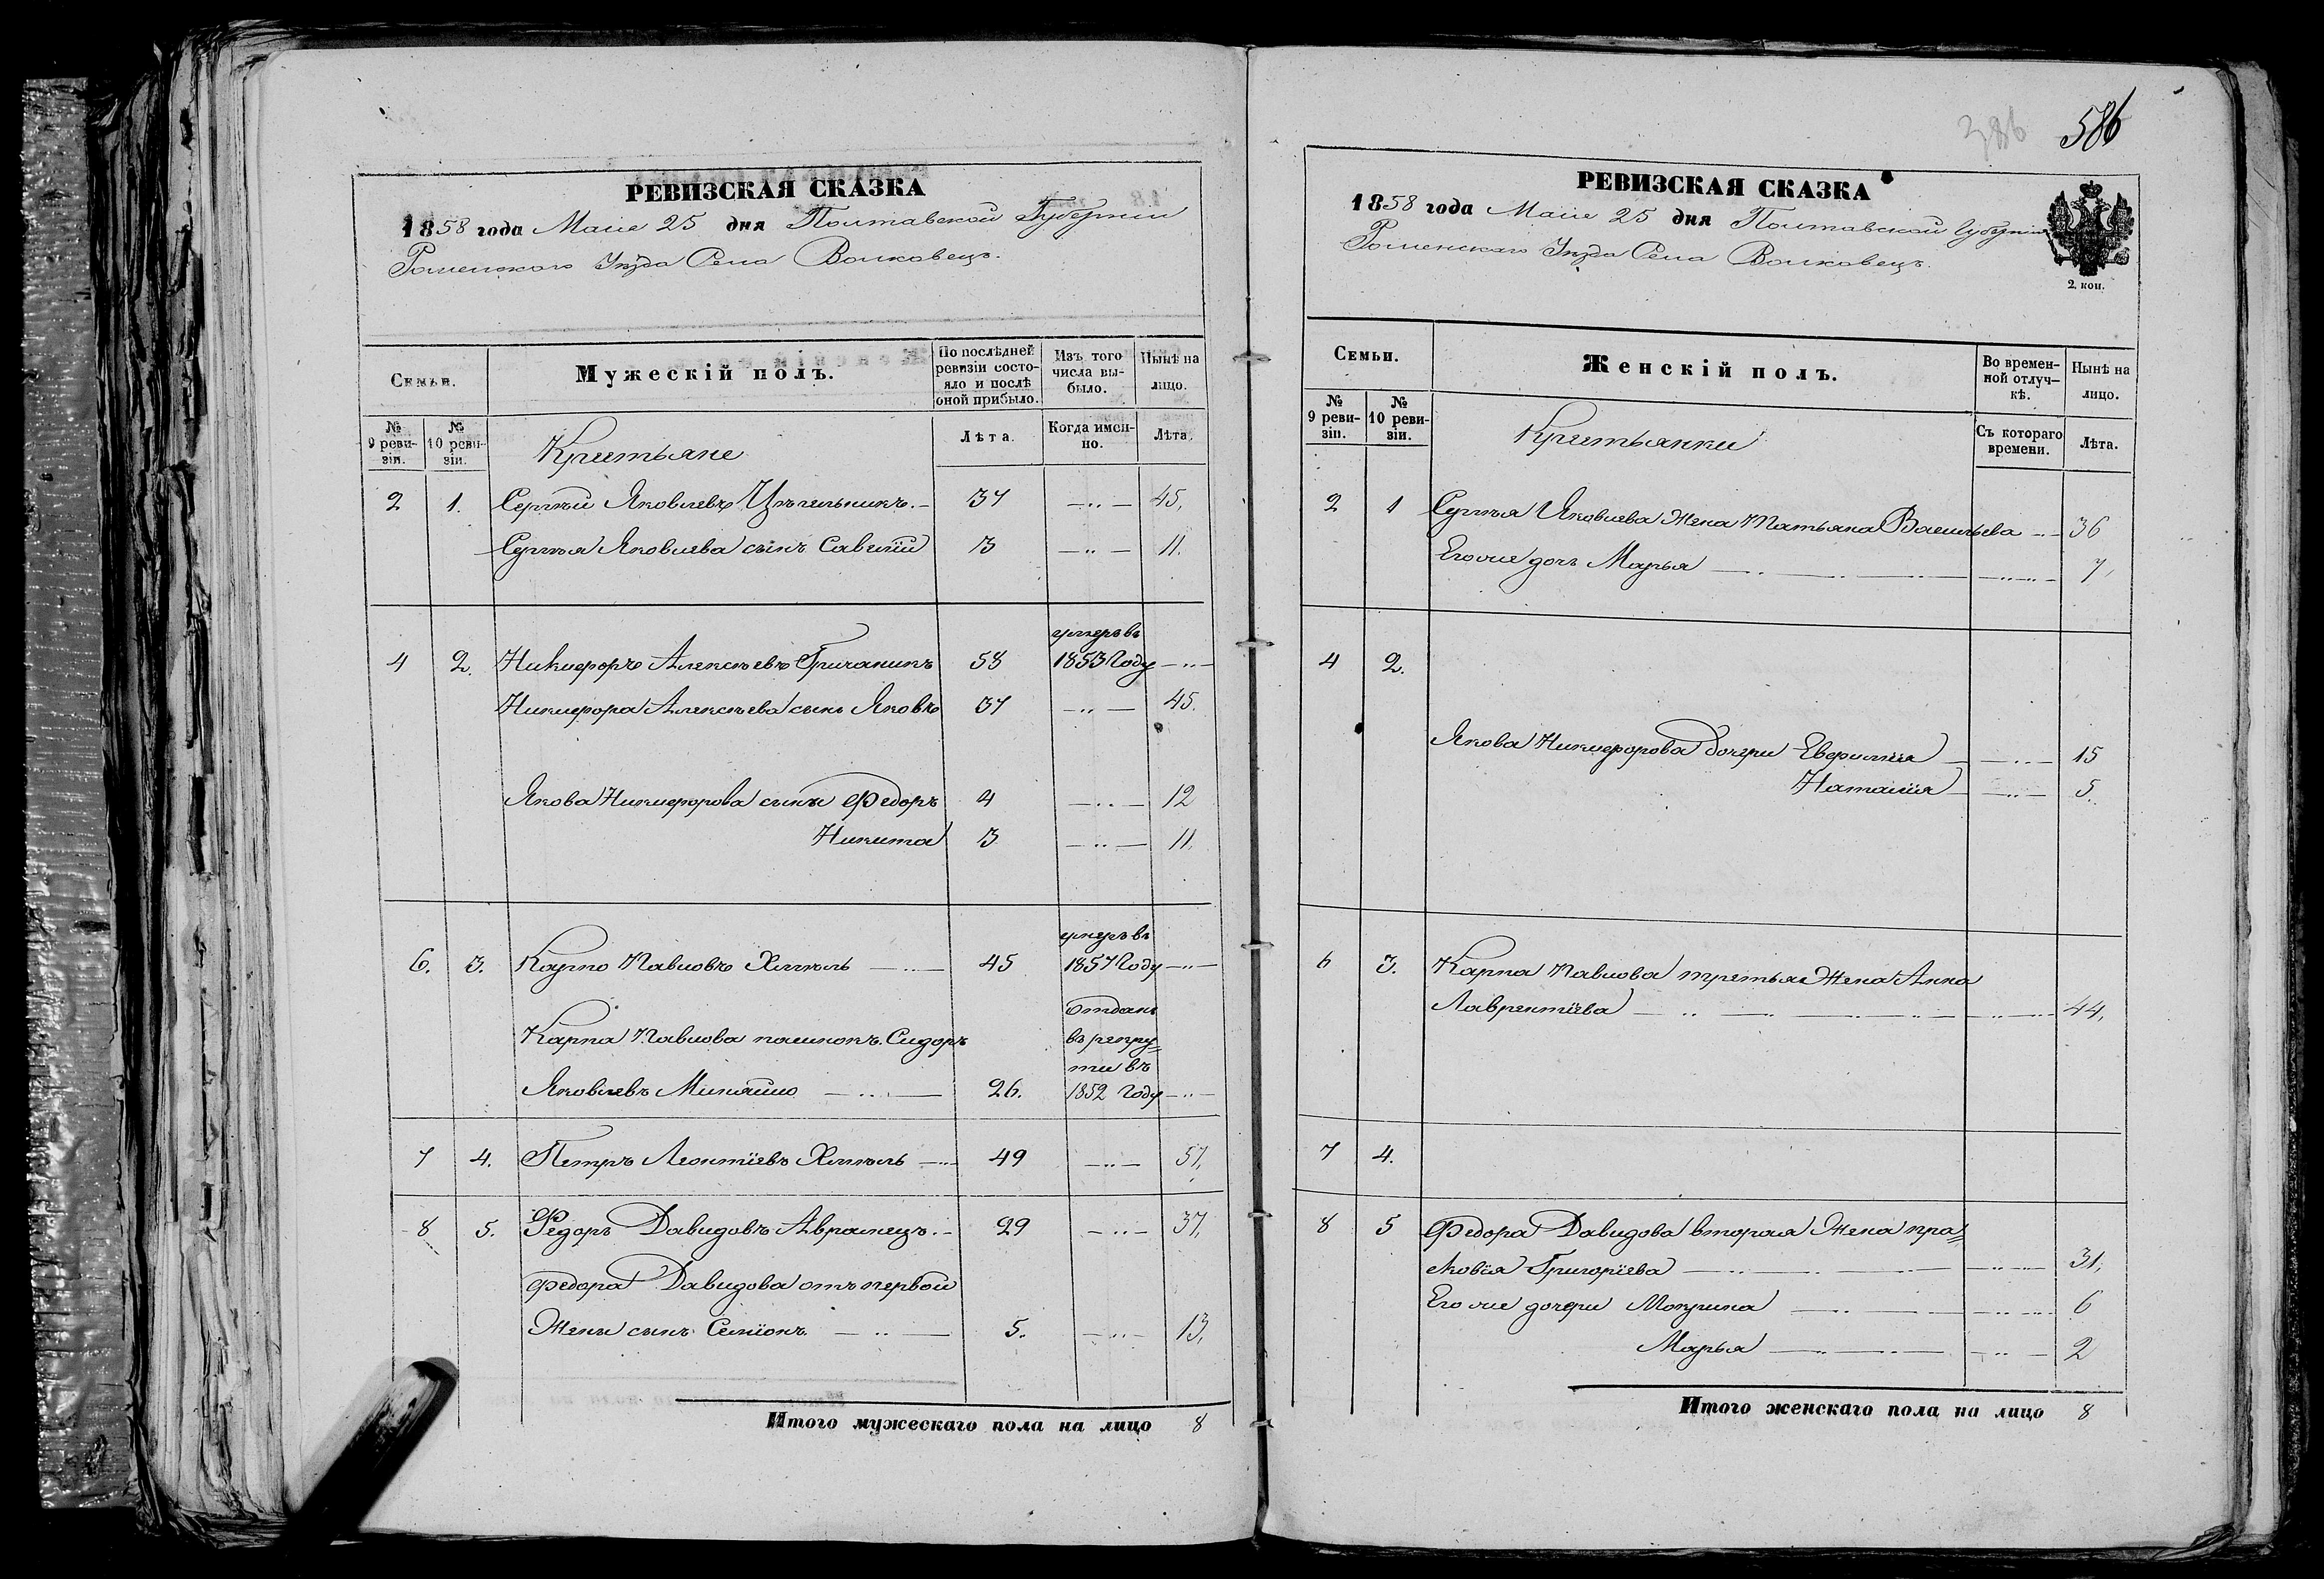 386 586
РЕВИЗСКАЯ СКАЗКА
1858 года Маия 25 дня Полтавской Губернии
Роменского Уезда Села Волковецъ.
Семьи.
Мужескій полъ.
По послѣдней ревизіи состояло и послѣ оной прибыло.
Изъ того числа выбыло.
Нынѣ на лицо.
№ 9 ревизіи.
№ 10 ревизіи.
Крестьяне
Лѣта.
Когда именно.
Лѣта.
2 1. Сергѣй Яковлевъ Цѣпельникъ. 37 45.
Сергѣя Яковлева сынъ Савелій 3 11.
умеръ въ
4 2. Никифоръ Алексѣевъ Гричанинъ 58 1853 Году
Никифора Алексѣева сынъ Яковъ 37 45.
Якова Никифорова сыны Федоръ 4 12
Никита 3 11.
умеръ въ
6. 3. Карпо Павловъ Хмѣль 45 1857 Году
отданъ
Карпа Павлова пасынокъ Сидоръ въ рекру=
ты въ
Яковлевъ 26. 1852 Году
7 4. Петръ Леонтіевъ Хмѣль 49 57.
8 5. Федоръ Давидовъ Аврамецъ. 29 37.
Федора Давидова отъ первой
Жены сынъ Семіонъ 5. 13.
Итого мужескаго пола на лицо 8
РЕВИЗСКАЯ СКАЗКА
1858 года Маия 25 дня Полтавской Губерніи
Роменскаго Уезда Села Волковецъ.
2. коп.
Семьи.
Женскій полъ.
Во временной отлучкѣ.
Нынѣ на лицо.
№ 9 ревизіи.
№ 10 ревизіи.
Крестьянки
Съ котораго времени.
Лѣта.
2 1 Сергѣя Яковлева Жена Татьяна Васильева 36
Его же дочь Марья 7.
4 2.
Якова Никифорова дочери Евфимія 15
Наталія 5.
6 3. Карпа Павлова третья Жена Анна
Лаврентіева 44.
7 4.
8 5 Федора Давидова вторая Жена Пра=
сковія Григоріева 31.
Его же дочери Мокрина 6
Марья 2
Итого женскаго пола на лицо 8